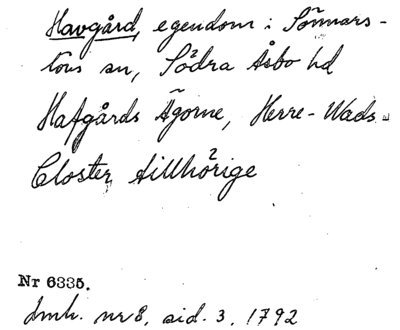 Havgård, egendom i Sönnars-
lövs sn, Södra Åsbo hd
Hafgårds Ägorne, Herre-Wads-
Closter tillhörige
Nr 6335.
Lmk. nr 8, sid. 3, 1792